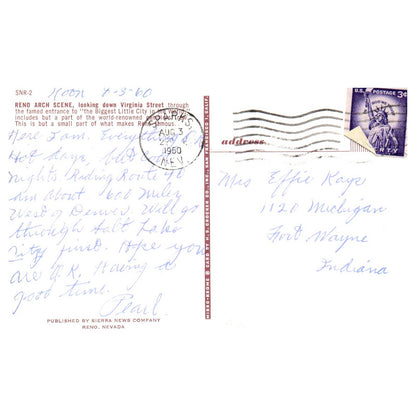 SNR-2
Noon 8-3-60
RENO ARCH SCENE, looking down Virginia Street through
the famed entrance to "the Biggest Little City in the World"
includes but a part of the world-renowned
This is but a small part of what makes Reno famous.
Here I am. Everything O.K.
Hot days, but
nights Riding Route 40
am about 600 miles
West of Denver, will go
through Salt Lake
City first. Hope you
are O.K. Having a
good time.
Pearl
PUBLISHED BY SIERRA NEWS COMPANY
RENO, NEVADA
SPARKS
AUG 3
1960
NEV.
address
U.S. POSTAGE 3¢
LIBERTY
Mrs Effie Kaye
1120 Michigan
Fort Wayne
Indiana